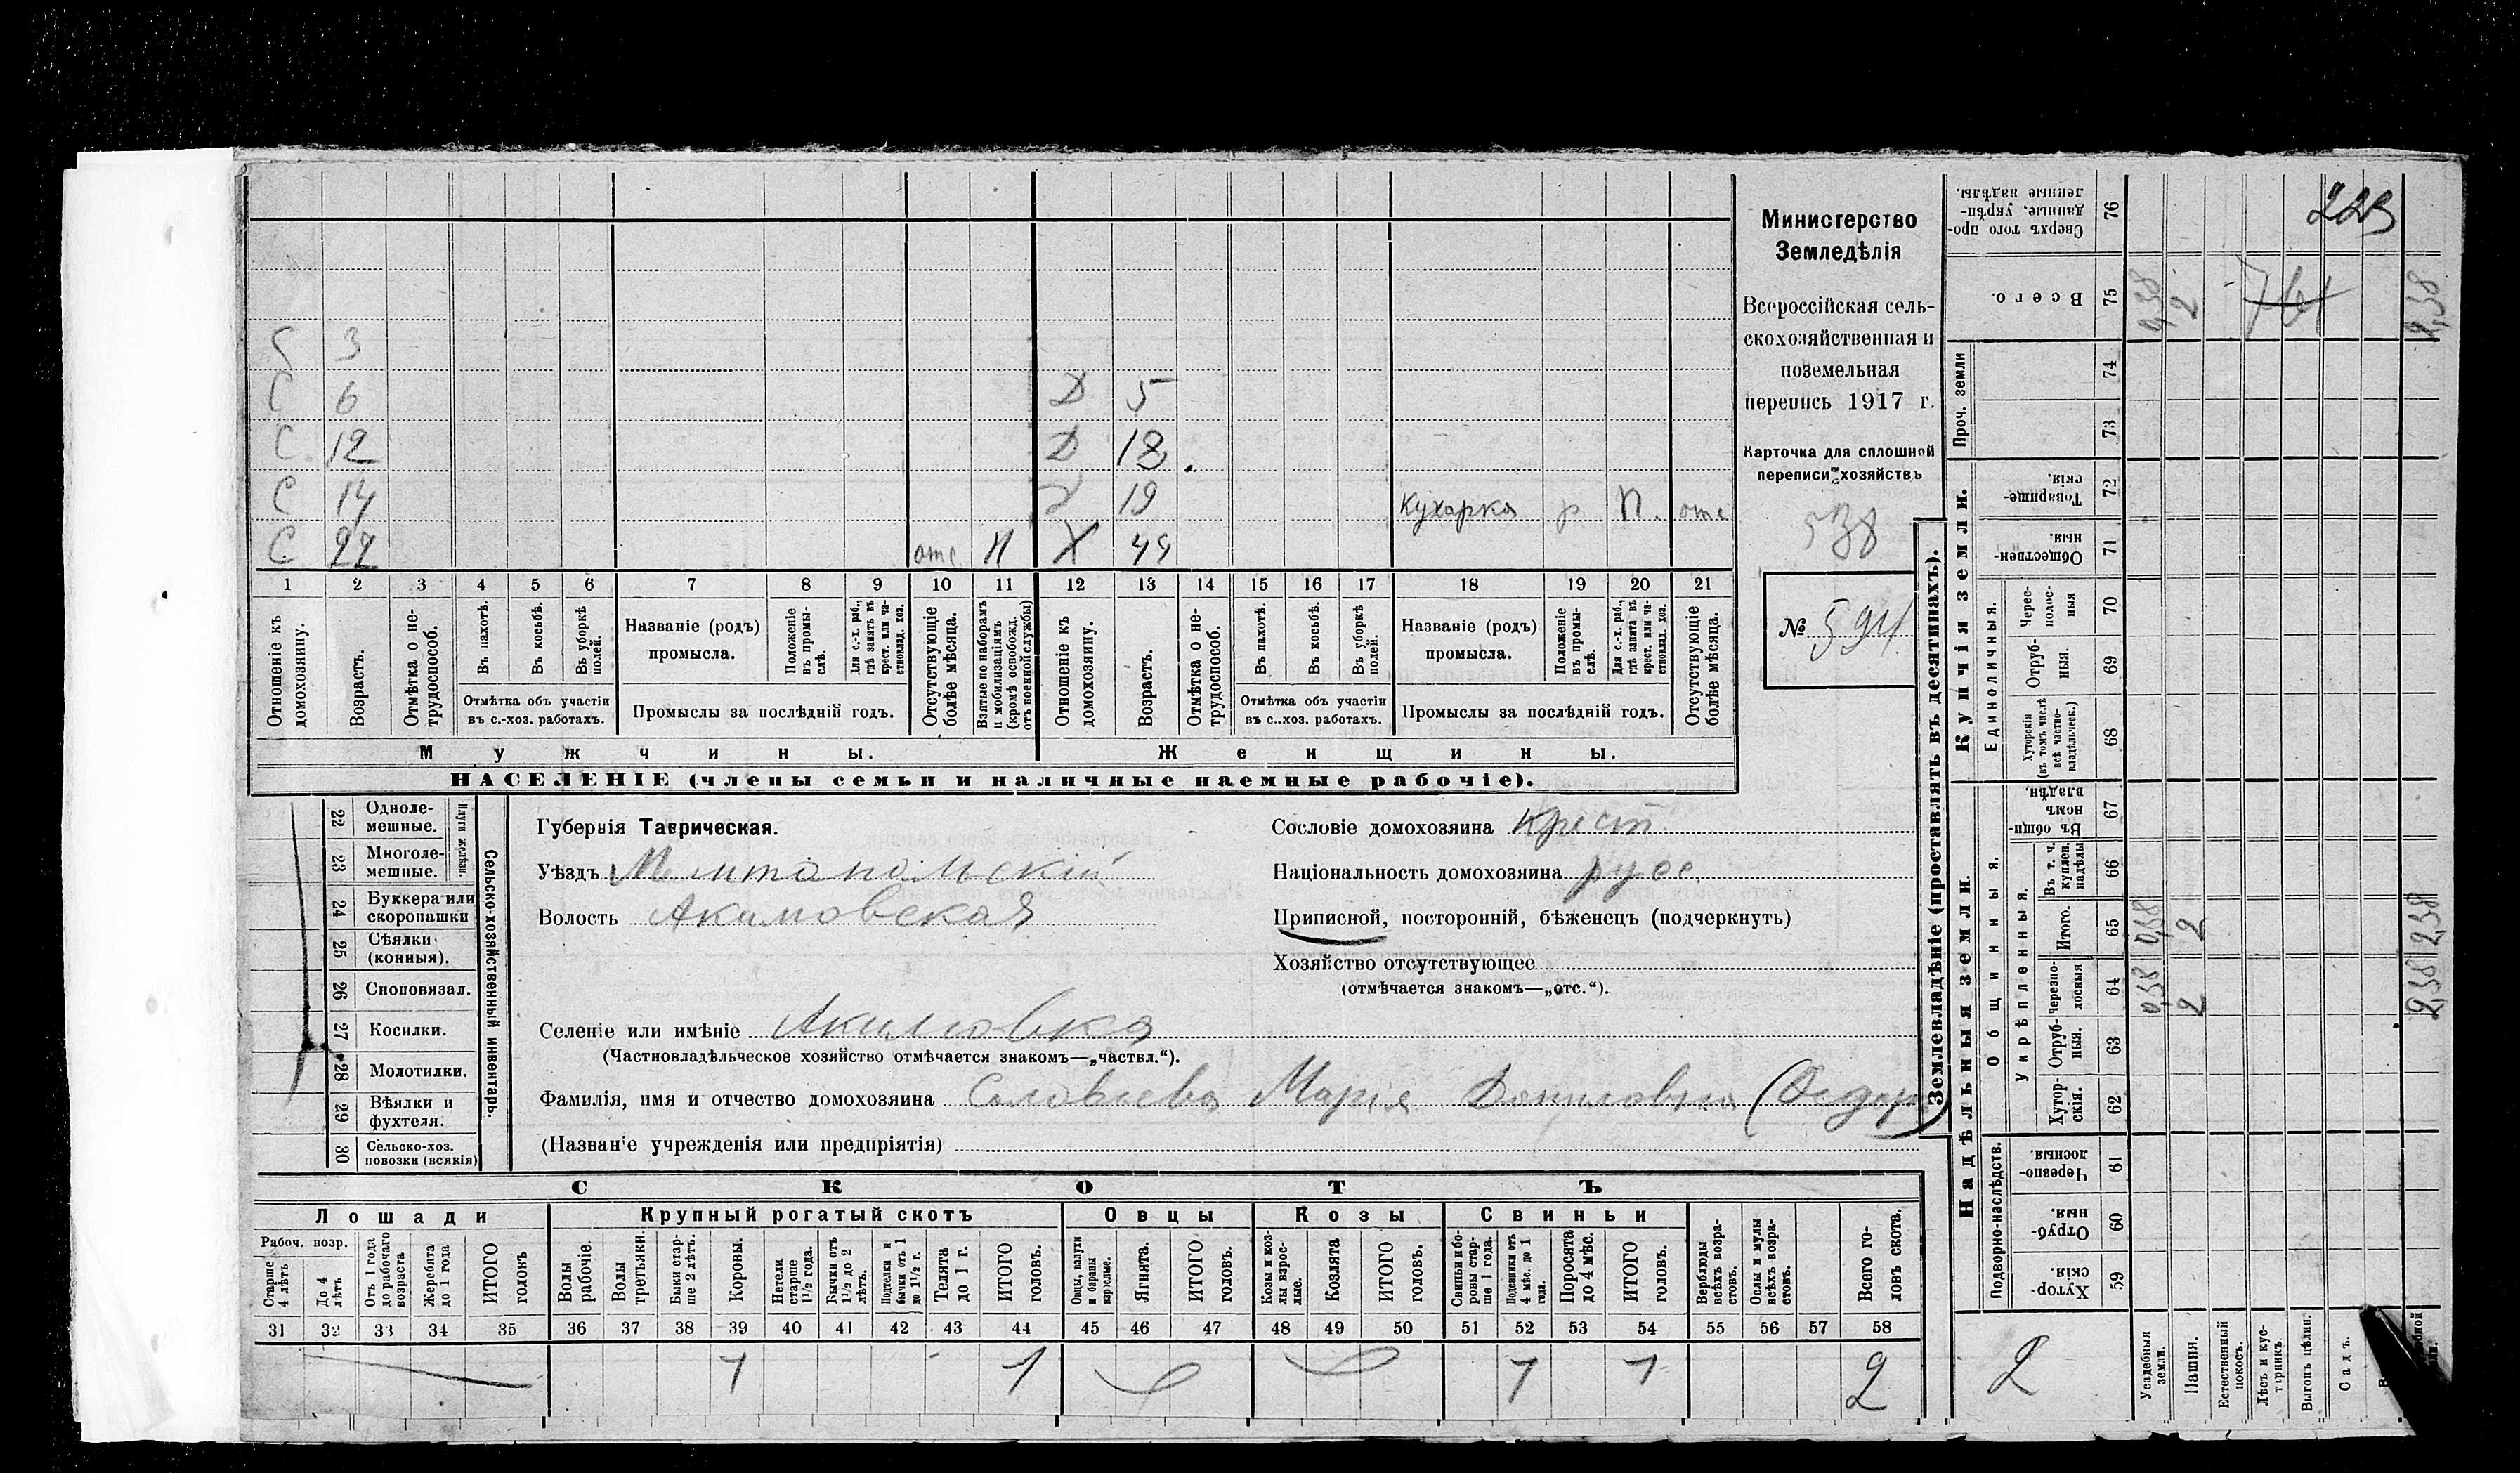 С 3
С 6 Д 5
С 12 Д 18
С 14 19 Кухарка р П. отс
С 22 отс П Х 44
1 2 3 4 5 6 7 8 9 10 11 12 13 14 15 16 17 18 19 20 21
Отношеніе къ домохозяину.
Возрастъ.
Отмѣтка о нетрудоспособ.
Въ пахотѣ.
Въ косьбѣ.
Въ уборкѣ полей.
Отмѣтка объ участіи въ с.-хоз. работахъ.
Названіе (родъ) промысла.
Положеніе въ промыслѣ.
Для с.-х. раб., гдѣ занятъ въ крест. или частновлад. хоз.
Промыслы за послѣдній годъ.
Отсутствующіе болѣе мѣсяца.
Взятые по наборамъ и мобилизаціямъ (кромѣ освобожд. отъ военной службы)
Отношеніе къ домохозяину.
Возрастъ.
Отмѣтка о нетрудоспособ.
Въ пахотѣ.
Въ косьбѣ.
Въ уборкѣ полей.
Отмѣтка объ участіи въ с..хоз. работахъ.
Названіе (родъ) промысла.
Положеніе въ промыслѣ.
Для с.-х. раб., гдѣ занята въ крест. или частновлад. хоз.
Промыслы за послѣдній годъ.
Отсутствующіе болѣе мѣсяца.
Мужчины. Женщины.
НАСЕЛЕНІЕ (члены семьи и наличные наемные рабочіе).
Министерство
Земледѣлія
Всероссійская сель-
скохозяйственная и
поземельная
перепись 1917 г.
Карточка для сплошной
переписи хозяйствъ
538
№ 594
22 Одноле-мешные.
23 Многоле-мешные.
Плуги желѣзн.
24 Буккера или скоропашки
25 Сѣялки (конныя).
26 Сноповязал.
27 Косилки.
28 Молотилки.
29 Вѣялки и фухтеля.
30 Сельско-хоз. повозки (всякія)
Сельско-хозяйственный инвентарь.
Губернія Таврическая.
Уѣздъ Мелитопольскій
Волость Акимовская
Сословіе домохозяина крест
Національность домохозяина русс.
Приписной, посторонній, бѣженецъ (подчеркнуть)
Хозяйство отсутствующее
(отмѣчается знакомъ—„отс.“).
Селеніе или имѣніе Акимовка
(Частновладѣльческое хозяйство отмѣчается знакомъ—„частвл.“).
Фамилія, имя и отчество домохозяина Соловьева Марія Даниловна (Федор
(Названіе учрежденія или предпріятія)
СКОТЪ
Лошади Крупный рогатый скотъ Овцы Козы Свиньи
Рабоч. возр.
Старше 4 лѣтъ
До 4 лѣтъ
Отъ 1 года до рабочаго возраста
Жеребята до 1 года
ИТОГО головъ
Волы рабочіе.
Волы третьяки.
Быки старше 2 лѣтъ.
Коровы.
Нетели старше 1½ года.
Бычки отъ 1½ до 2 лѣтъ.
Подтелки и бычки отъ 1 до 1½ г.
Телята до 1 г.
ИТОГО головъ.
Овцы, валухи и бараны взрослые.
Ягнята.
ИТОГО головъ.
Козы и козлы взрослые.
Козлята
ИТОГО головъ.
Свиньи и боровы старше 1 года.
Подсвинки отъ 4 мѣс. до 1 года.
Поросята до 4 мѣс.
ИТОГО головъ.
Верблюды всѣхъ возрастовъ.
Ослы и мулы всѣхъ возрастовъ.
Всего головъ скота.
31 32 33 34 35 36 37 38 39 40 41 42 43 44 45 46 47 48 49 50 51 52 53 54 55 56 57 58
1 1 1 1 2
Землевладѣніе (проставлять въ десятинахъ).
Купчія земли.
Надѣльныя земли.
Сверхъ того проданные, укрѣпленные надѣлы. 76
Всего. 75 0,38 2 2,38
Проч. земли 74 73
Товарищескія. 72
Общественныя. 71
Единоличныя.
Чересполосныя 70
Отрубныя. 69
Хуторскія (въ томъ числѣ всѣ частновладѣльческ.) 68
Общинныя.
Въ общинномъ владѣн. 67
Укрѣпленныя.
Въ т. ч. куплен. надѣлы 66
Итого. 65 0,38 2 2,38
Черезполосныя 64 0,38 2 2,38
Отрубныя. 63
Хуторскія. 62
Подворно-наслѣдств.
Черезполосныя. 61
Отрубныя. 60
Хуторскія. 59
2
Усадебныя земли.
Пашня.
Естественный покосъ.
Лѣсъ и кустарникъ.
Выгонъ цѣлин.
Садъ.